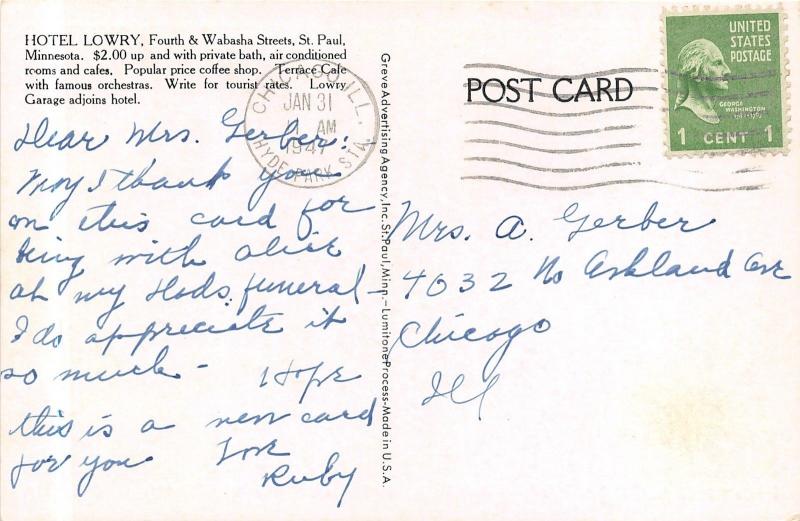 HOTEL LOWRY, Fourth & Wabasha Streets, St. Paul,
Minnesota. $2.00 up and with private bath, air conditioned
rooms and cafes. Popular price coffee shop. Terrace Cafe
with famous orchestras. Write for tourist rates. Lowry
Garage adjoins hotel.
Dear Mrs. Gerber:
May I thank you
on this card for
being with
at my funeral -
I do appreciate it
so much - I Hope
this is a new card
for you Love
Ruby
Greve Advertising Agency, Inc. St. Paul, Minn. - Lumitone Process - Made in U.S.A.
POST CARD
CHICAGO, ILL.
JAN 31
AM
1947
HYDE PARK STA.
UNITED
STATES
POSTAGE
GEORGE
WASHINGTON
1 CENT 1
Mrs. A. Gerber
4032 No Ashland Ave
Chicago
Ill